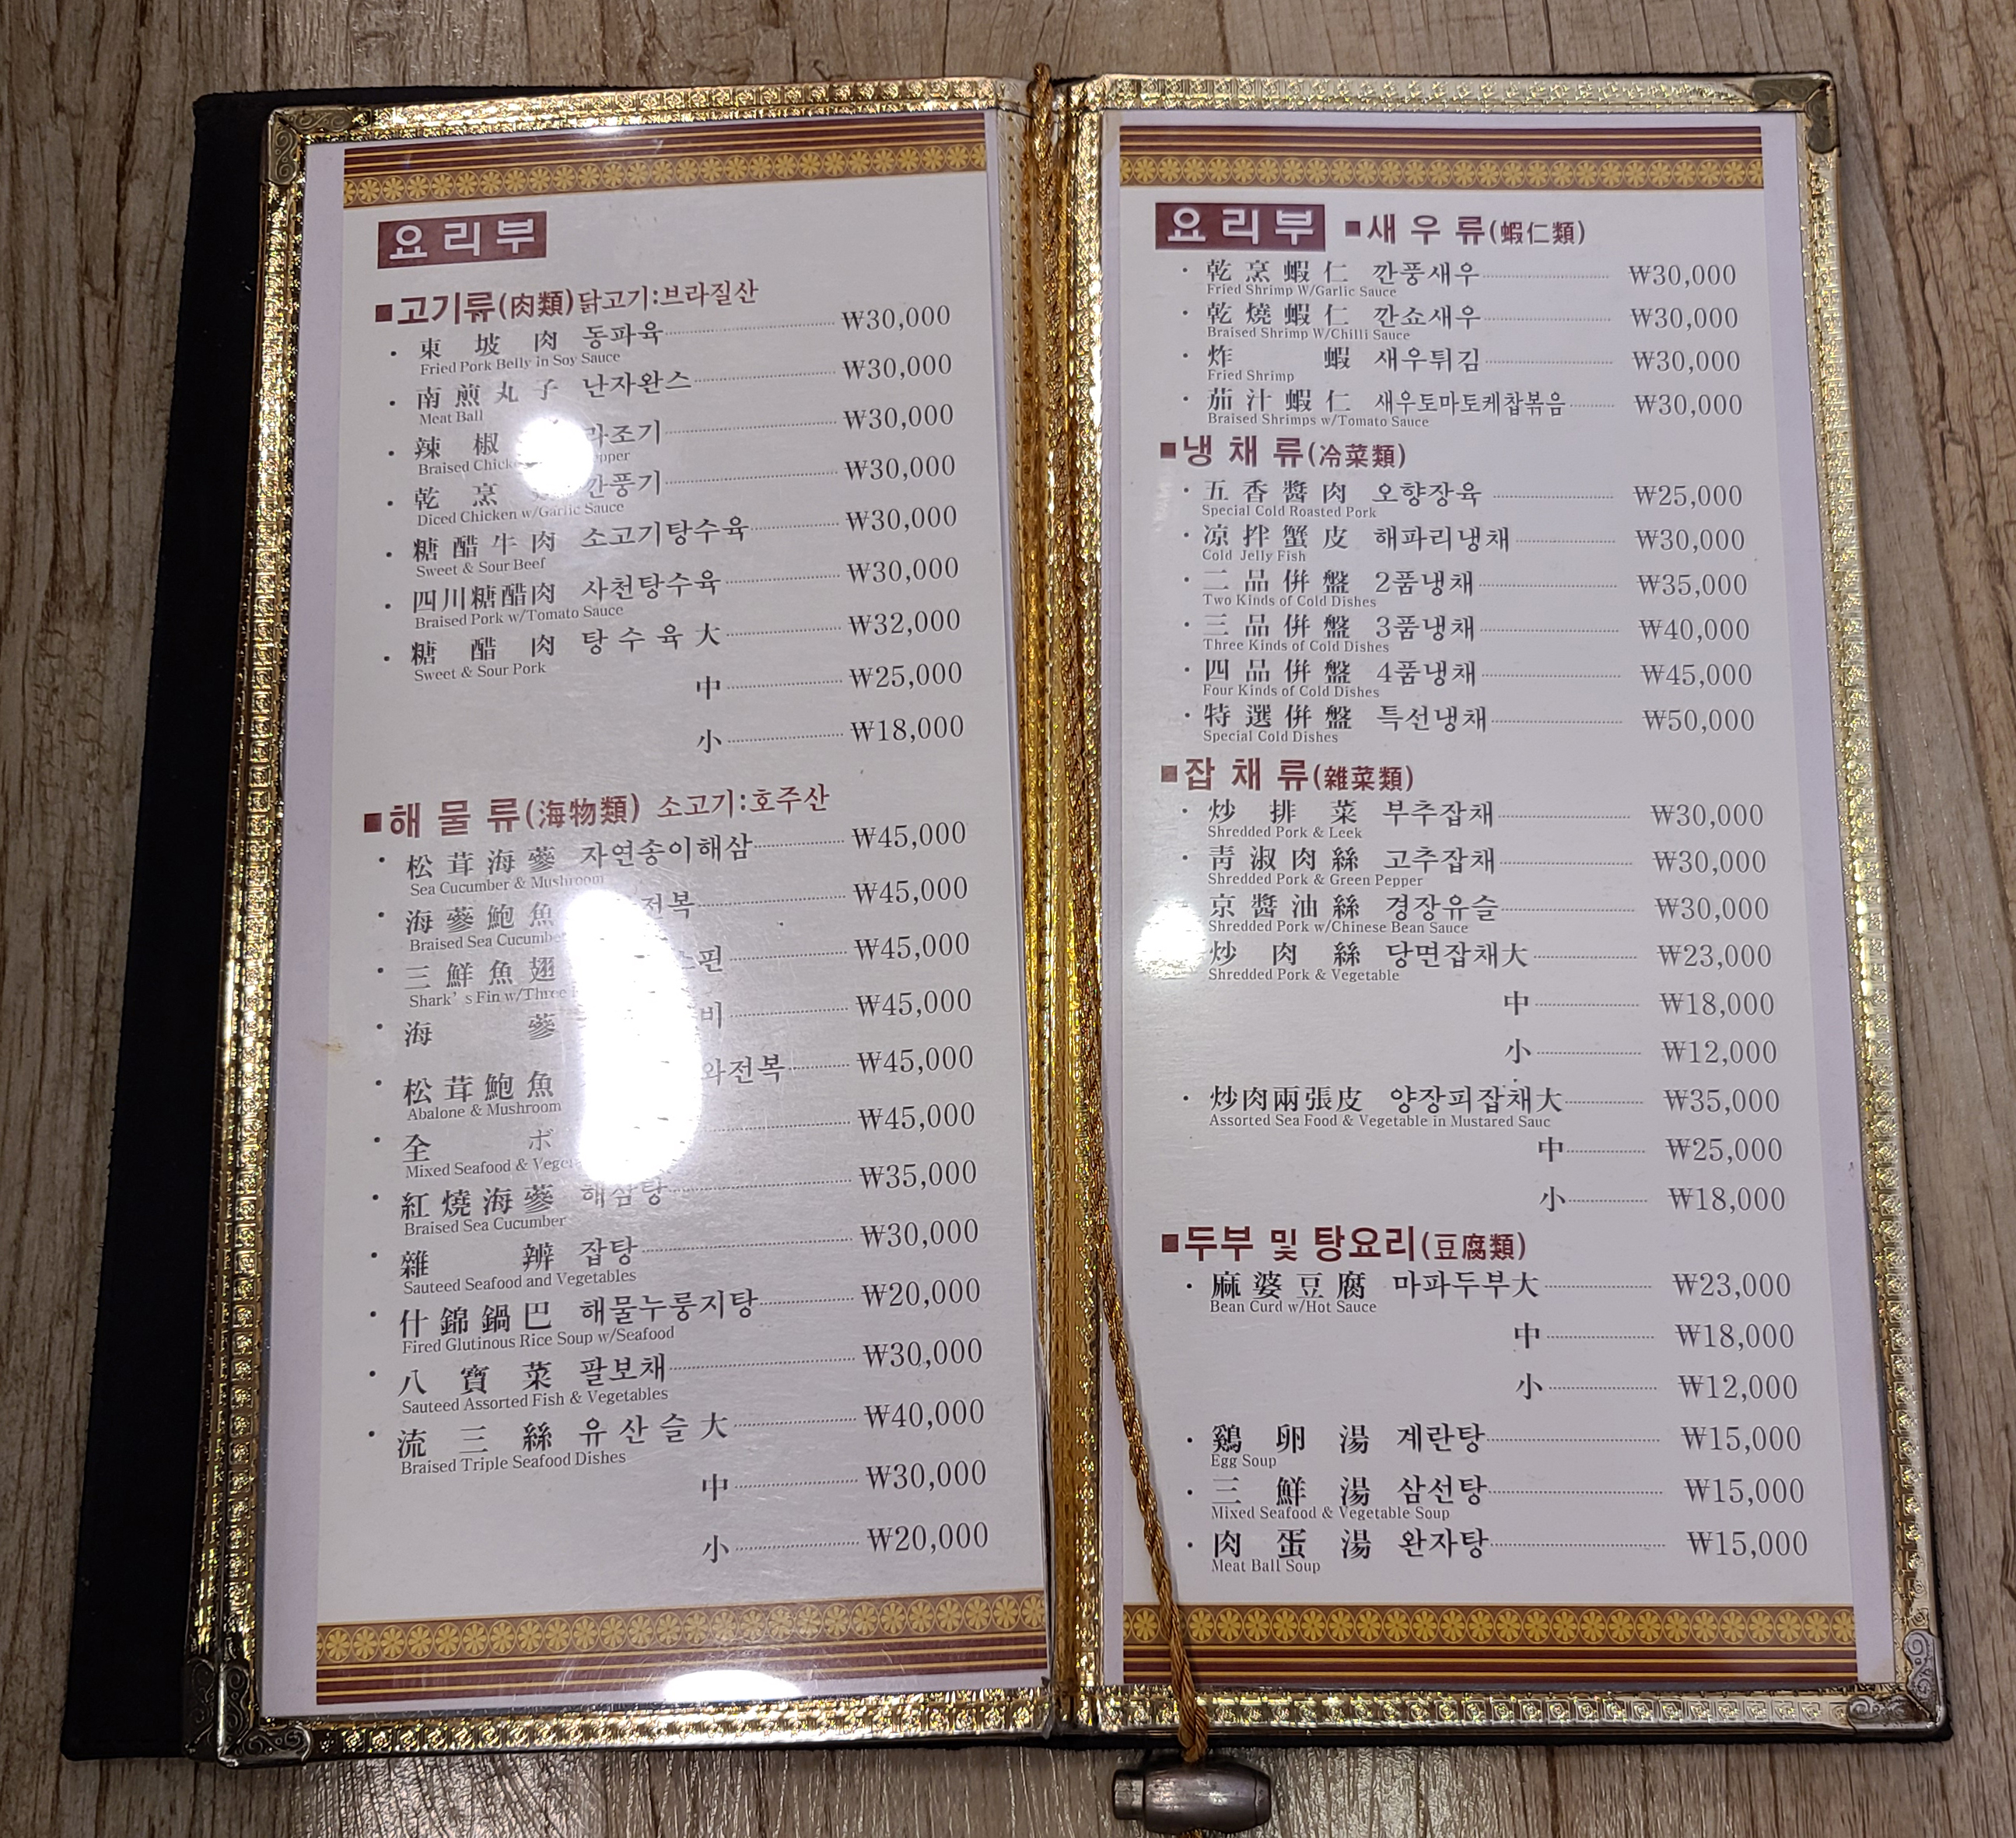 요리부
■고기류(肉類)닭고기:브라질산
· 東坡肉 동파육 ₩30,000
Fried Pork Belly in Soy Sauce
· 南煎丸子 난자완스 ₩30,000
Meat Ball
· 辣椒 라조기 ₩30,000
Braised
· 乾烹 깐풍기 ₩30,000
Diced Chicken w/Garlic Sauce
· 糖醋牛肉 소고기탕수육 ₩30,000
Sweet & Sour Beef
· 四川糖醋肉 사천탕수육 ₩30,000
Braised Pork w/Tomato Sauce
· 糖醋肉 탕수육 大 ₩32,000
Sweet & Sour Pork
中 ₩25,000
小 ₩18,000
■해물류(海物類) 소고기:호주산
· 松茸海蔘 자연송이해삼 ₩45,000
Sea Cucumber & Mushroom
· 海蔘鮑魚 ₩45,000
Braised Sea
· 三鮮魚翅 ₩45,000
Shark's Fin w/Three
· 海蔘 ₩45,000
· 松茸鮑魚 ₩45,000
Abalone & Mushroom
· 全ボ ₩45,000
Mixed Seafood &
· 紅燒海蔘 해삼탕 ₩35,000
Braised Sea Cucumber
· 雜辨 잡탕 ₩30,000
Sauteed Seafood and Vegetables
· 什錦鍋巴 해물누룽지탕 ₩20,000
Fired Glutinous Rice Soup w/Seafood
· 八寶菜 팔보채 ₩30,000
Sauteed Assorted Fish & Vegetables
· 流三絲 유산슬 大 ₩40,000
Braised Triple Seafood Dishes
中 ₩30,000
小 ₩20,000
요리부 ■새우류(蝦仁類)
· 乾烹蝦仁 깐풍새우 ₩30,000
Fried Shrimp W/Garlic Sauce
· 乾燒蝦仁 깐쇼새우 ₩30,000
Braised Shrimp W/Chilli Sauce
· 炸蝦 새우튀김 ₩30,000
Fried Shrimp
· 茄汁蝦仁 새우토마토케찹볶음 ₩30,000
Braised Shrimps w/Tomato Sauce
■냉채류(冷菜類)
· 五香醬肉 오향장육 ₩25,000
Special Cold Roasted Pork
· 凉拌蟹皮 해파리냉채 ₩30,000
Cold Jelly Fish
· 二品倂盤 2품냉채 ₩35,000
Two Kinds of Cold Dishes
· 三品倂盤 3품냉채 ₩40,000
Three Kinds of Cold Dishes
· 四品倂盤 4품냉채 ₩45,000
Four Kinds of Cold Dishes
· 特選倂盤 특선냉채 ₩50,000
Special Cold Dishes
■잡채류(雜菜類)
· 炒排菜 부추잡채 ₩30,000
Shredded Pork & Leek
· 靑淑肉絲 고추잡채 ₩30,000
Shredded Pork & Green Pepper
京醬油絲 경장유슬 ₩30,000
Shredded Pork w/Chinese Bean Sauce
炒肉絲 당면잡채大 ₩23,000
Shredded Pork & Vegetable
中 ₩18,000
小 ₩12,000
· 炒肉兩張皮 양장피잡채大 ₩35,000
Assorted Sea Food & Vegetable in Mustared Sauc
中 ₩25,000
小 ₩18,000
■두부 및 탕요리(豆腐類)
· 麻婆豆腐 마파두부大 ₩23,000
Bean Curd w/Hot Sauce
中 ₩18,000
小 ₩12,000
· 鷄卵湯 계란탕 ₩15,000
Egg Soup
· 三鮮湯 삼선탕 ₩15,000
Mixed Seafood & Vegetable Soup
· 肉蛋湯 완자탕 ₩15,000
Meat Ball Soup